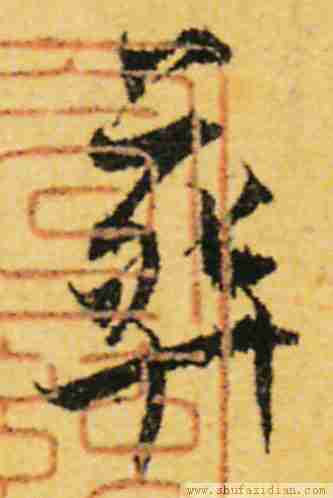 葬
www.shufazidian.com